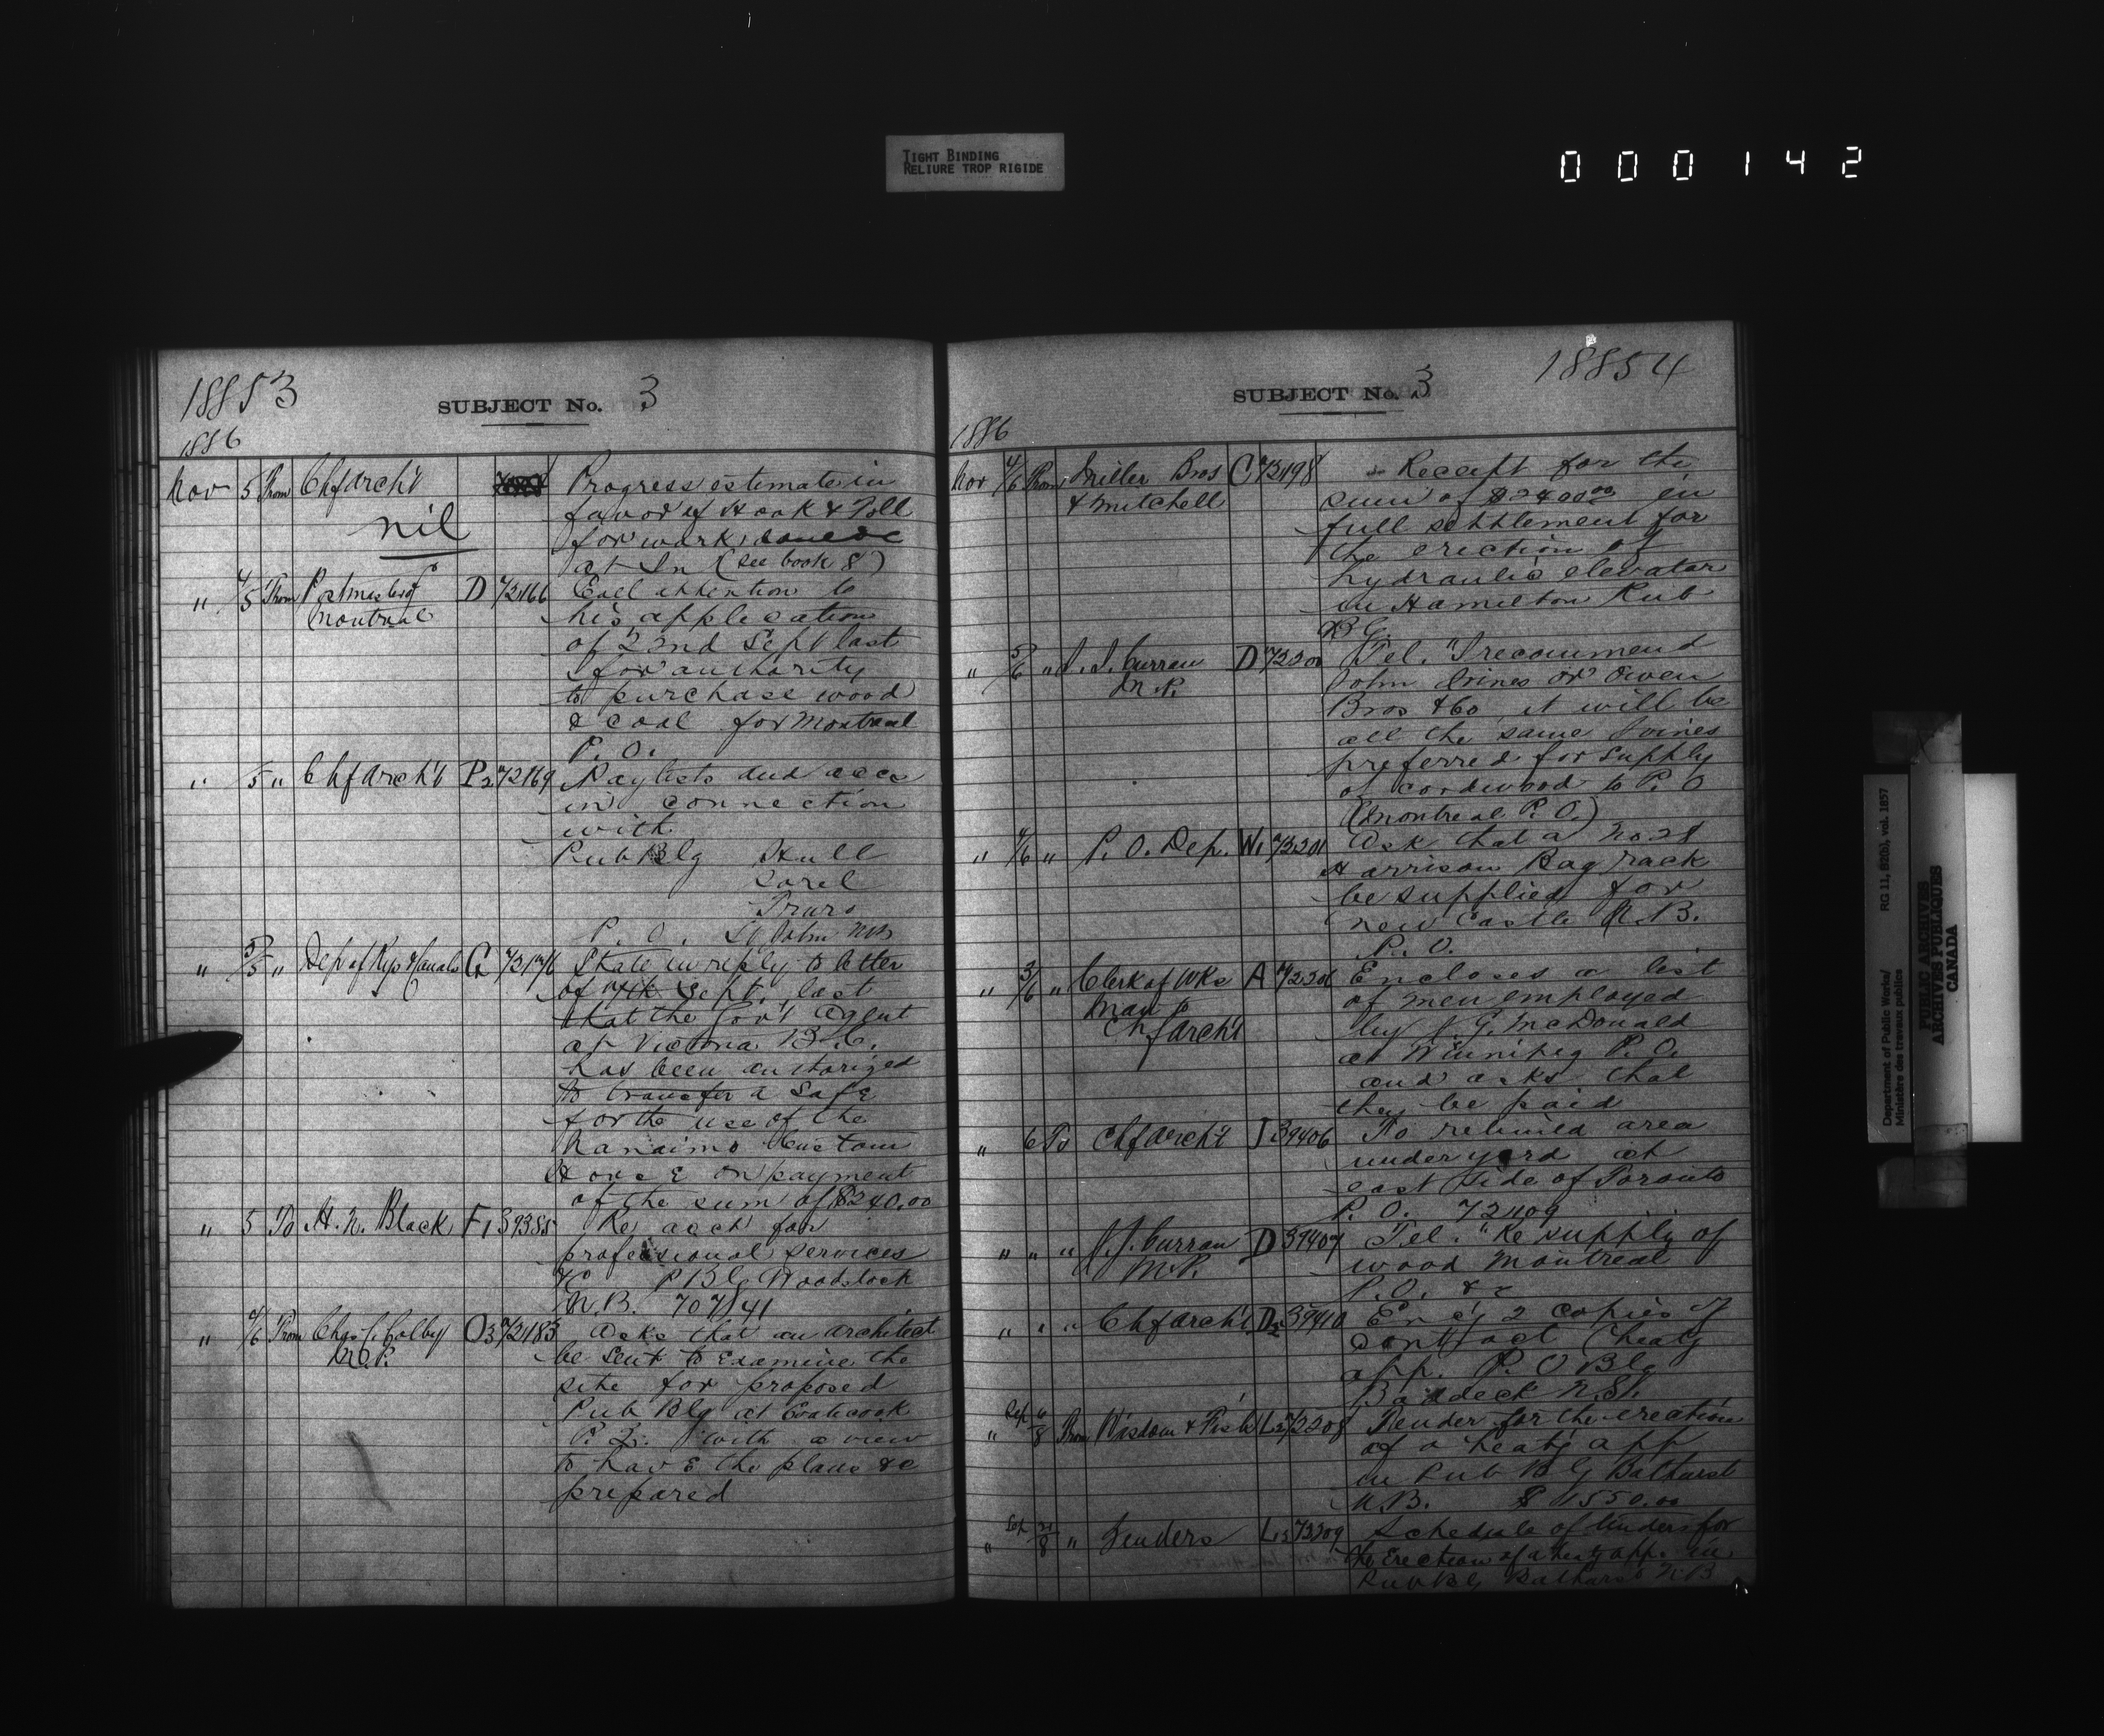 TIGHT BINDING
RELIURE TROP RIGIDE
000142
18853
SUBJECT No. 3
1886
Nov 5 From Chf Arch't Progress estimate in
nil
favor of Hook & Toll
for work
at (see book 8)
" 4/5 From Postmaster D 72166 Call attention to
Montreal
his application
of 22nd Sept last
for authority
to purchase wood
& coal for Montreal
P. O.
" 5 " Chf Arch't P2 72169 Paylists and accs
in connection
with
Pub Blg Hull
Sorel
Truro
P. O. St John NB
" 5/5 " Dep of Rys & Canals G 72176 State in reply to letter
of Sept. last
that the Gov't Agent
at Victoria B.C.
has been authorized
to transfer a Safe
for the use of the
Nanaimo Custom
House on payment
of the sum of $240.00
" 5 To A. N. Black F1 39385 Re acct for
professional services
&c P Blg Woodstock
N.B. 70741
" 4/6 From Chas C. Colby O3 72183 Asks that an architect
M.P.
be sent to examine the
site for proposed
Pub Blg at Coaticook
P. Q. with a view
to have the plans &c
prepared
18854
SUBJECT No. 3
1886
Nov 4/6 From Miller Bros C 72198 Receipt for the
& Mitchell
sum of $2400.00 in
full settlement for
the erection of
hydraulic elevator
in Hamilton Pub
B G.
" 5/6 " J. J. Curran D 72200 Tel. "I recommend
M.P.
John Irvines or Owen
Bros & Co it will be
all the same Irvines
preferred for supply
of cordwood to P. O
(Montreal P. O.)
" 4/6 " P. O. Dep. W1 72201 Ask that a No 21
Harrison Bag rack
be supplied for
New Castle N.B.
P. O.
" 3/6 " Clerk of Wks A 72206 Encloses a list
Man to
Chf Arch't
of men employed
by J. G. McDonald
at Winnipeg P. O.
and asks that
they be paid
" 6 To Chf Arch't I 39406 To rebuild area
under yard at
east side of Toronto
P. O. 72109
" " " J. J. Curran D 39407 Tel. "Re supply of
M.P.
wood Montreal
P. O. &c
" " " Chf Arch't D2 39410 Enc'g 2 copies of
contract heat'g
app. P. O Blg
Baddeck N.S.
" Sep 6/8 From Wisdom & Fish L2 72208 Tender for the erection
of a heat'g app
in Pub B G Bathurst
N.B. $1550.00
" Sep 21/8 " Tenders L3 72209 Schedule of tenders for
the Erection of a heat'g app. in
Pub B G Bathurst N.B
Department of Public Works/
Ministère des travaux publics
RG 11, B2(b), vol. 1857
PUBLIC ARCHIVES
ARCHIVES PUBLIQUES
CANADA